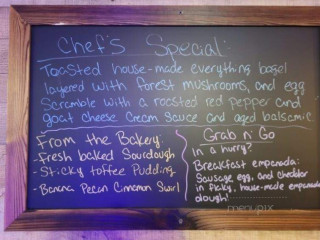 Chef's Special:
Toasted house-made everything bagel
layered with forest mushrooms, and egg
Scramble with a roasted red pepper and
goat cheese cream sauce and aged balsamic.
From the Bakery:
- Fresh baked Sourdough
- Sticky toffee Pudding
- Banana Pecan Cinnamon Swirl
Grab n' Go
In a hurry?
Breakfast empanada:
Sausage, egg, and cheddar
in flaky, house-made empanada
dough!
menupix